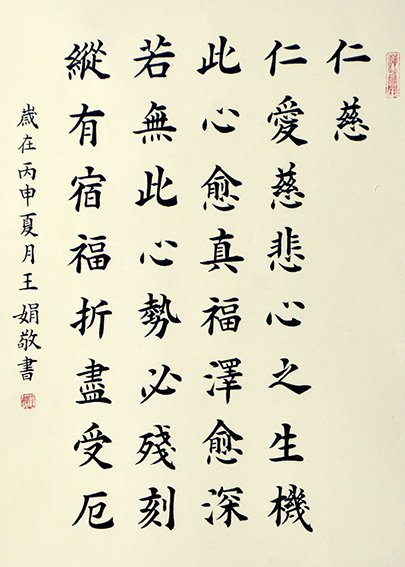 仁慈
仁愛慈悲心之生機
此心愈真福澤愈深
若無此心勢必殘刻
縱有宿福折盡受厄
歲在丙申夏月王娟敬書